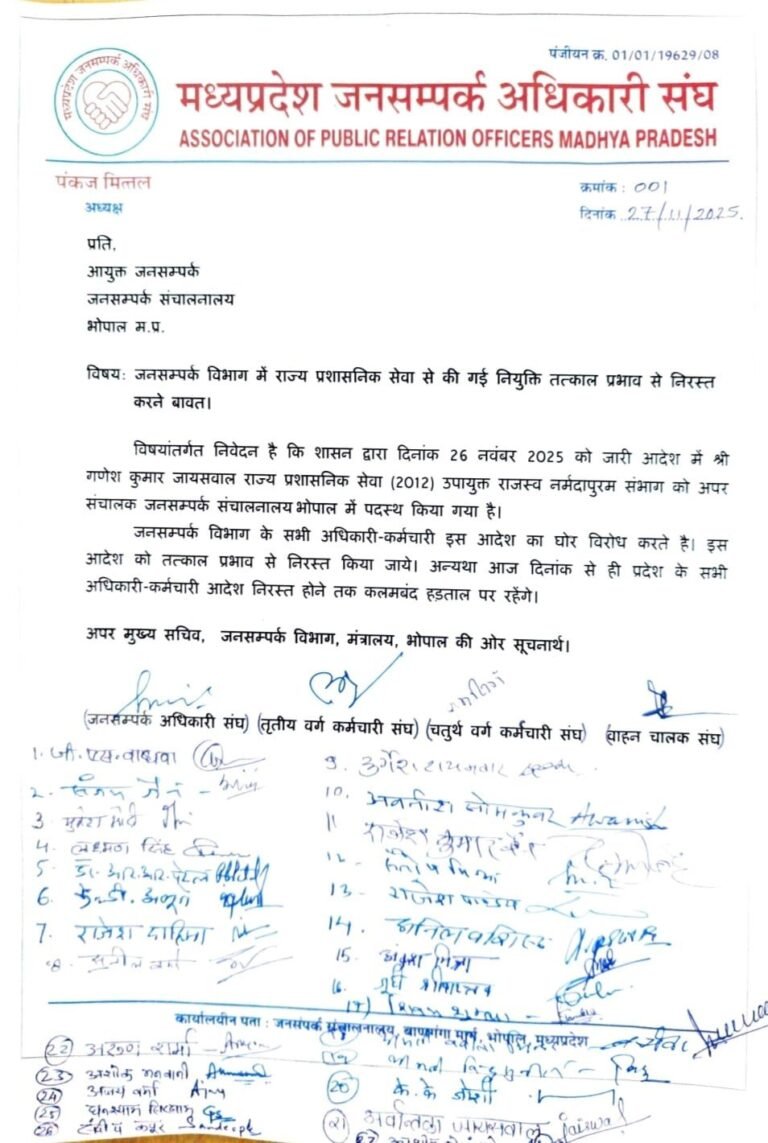 पंजीयन क्र. 01/01/19629/08
मध्यप्रदेश जनसम्पर्क अधिकारी संघ
मध्यप्रदेश जनसम्पर्क अधिकारी संघ
ASSOCIATION OF PUBLIC RELATION OFFICERS MADHYA PRADESH
पंकज मित्तल
अध्यक्ष
क्रमांक : 001
दिनांक 27/11/2025.
प्रति,
आयुक्त जनसम्पर्क
जनसम्पर्क संचालनालय
भोपाल म.प्र.
विषय: जनसम्पर्क विभाग में राज्य प्रशासनिक सेवा से की गई नियुक्ति तत्काल प्रभाव से निरस्त
करने बावत।
विषयांतर्गत निवेदन है कि शासन द्वारा दिनांक 26 नवंबर 2025 को जारी आदेश में श्री
गणेश कुमार जायसवाल राज्य प्रशासनिक सेवा (2012) उपायुक्त राजस्व नर्मदापुरम संभाग को अपर
संचालक जनसम्पर्क संचालनालय भोपाल में पदस्थ किया गया है।
जनसम्पर्क विभाग के सभी अधिकारी-कर्मचारी इस आदेश का घोर विरोध करते है। इस
आदेश को तत्काल प्रभाव से निरस्त किया जाये। अन्यथा आज दिनांक से ही प्रदेश के सभी
अधिकारी-कर्मचारी आदेश निरस्त होने तक कलमबंद हड़ताल पर रहेंगे।
अपर मुख्य सचिव, जनसम्पर्क विभाग, मंत्रालय, भोपाल की ओर सूचनार्थ।
(जनसम्पर्क अधिकारी संघ) (तृतीय वर्ग कर्मचारी संघ) (चतुर्थ वर्ग कर्मचारी संघ) (वाहन चालक संघ)
1. जी. एस. वाधवा
2. संजय जैन
3
4. लक्ष्मण सिंह
5. डॉ. आर. आर. पटेल
6.
7. राजेश दाहिमा
8. सुनील वर्मा
9.
10. अवनीश सोमकुवर Awanish
11 राजेश
12. संतोष मिश्रा
13. राजेश पाण्डेय
14. अनिल वशिष्ठ
15.
16.
17)
कार्यालयीन पता : जनसंपर्क संचालनालय, बाणगंगा मार्ग, भोपाल, मध्यप्रदेश
22 अरुण शर्मा
23 अशोक
24 अजय वर्मा Ajay
25 घनश्याम
26 Sandeep
20 के. के. जोशी
21 Jaiswal
27